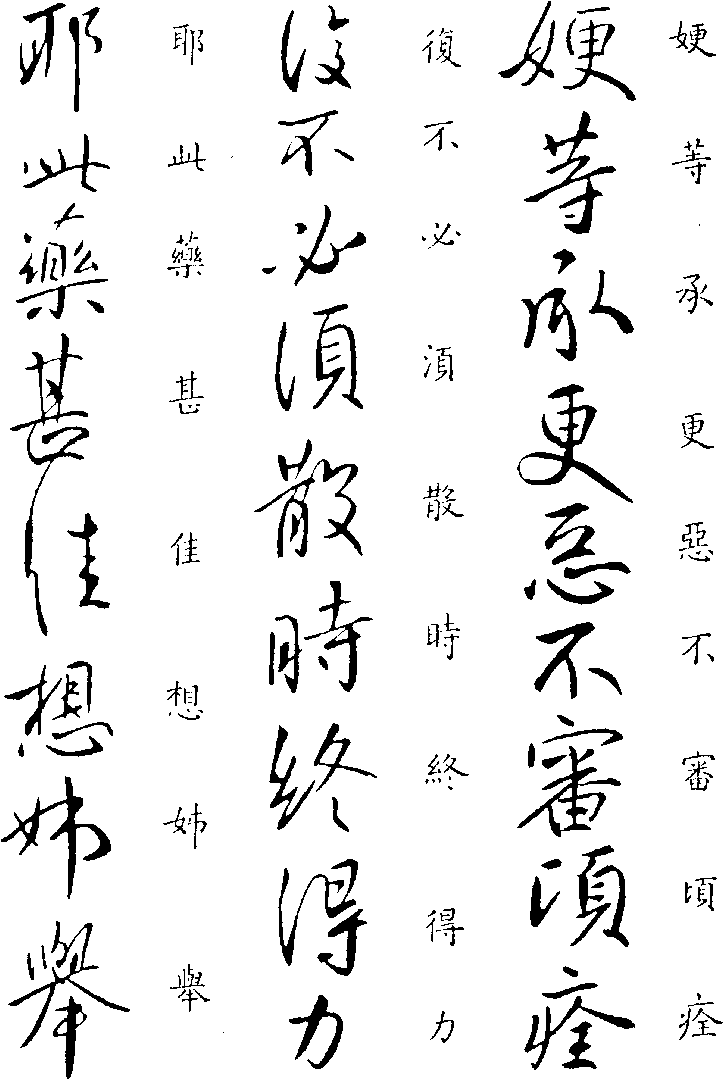 㛐等承更惡不審頃痊
㛐等承更惡不審頃痊
復不必須散時終得力
復不必湏散時終得力
耶此藥甚佳想姊舉
耶此藥甚佳想姊舉